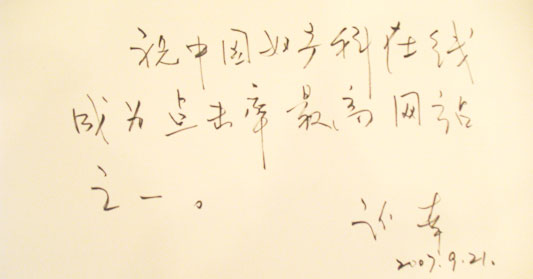 祝中国妇产科在线
成为点击率最高网站
之一。
2007.9.21.